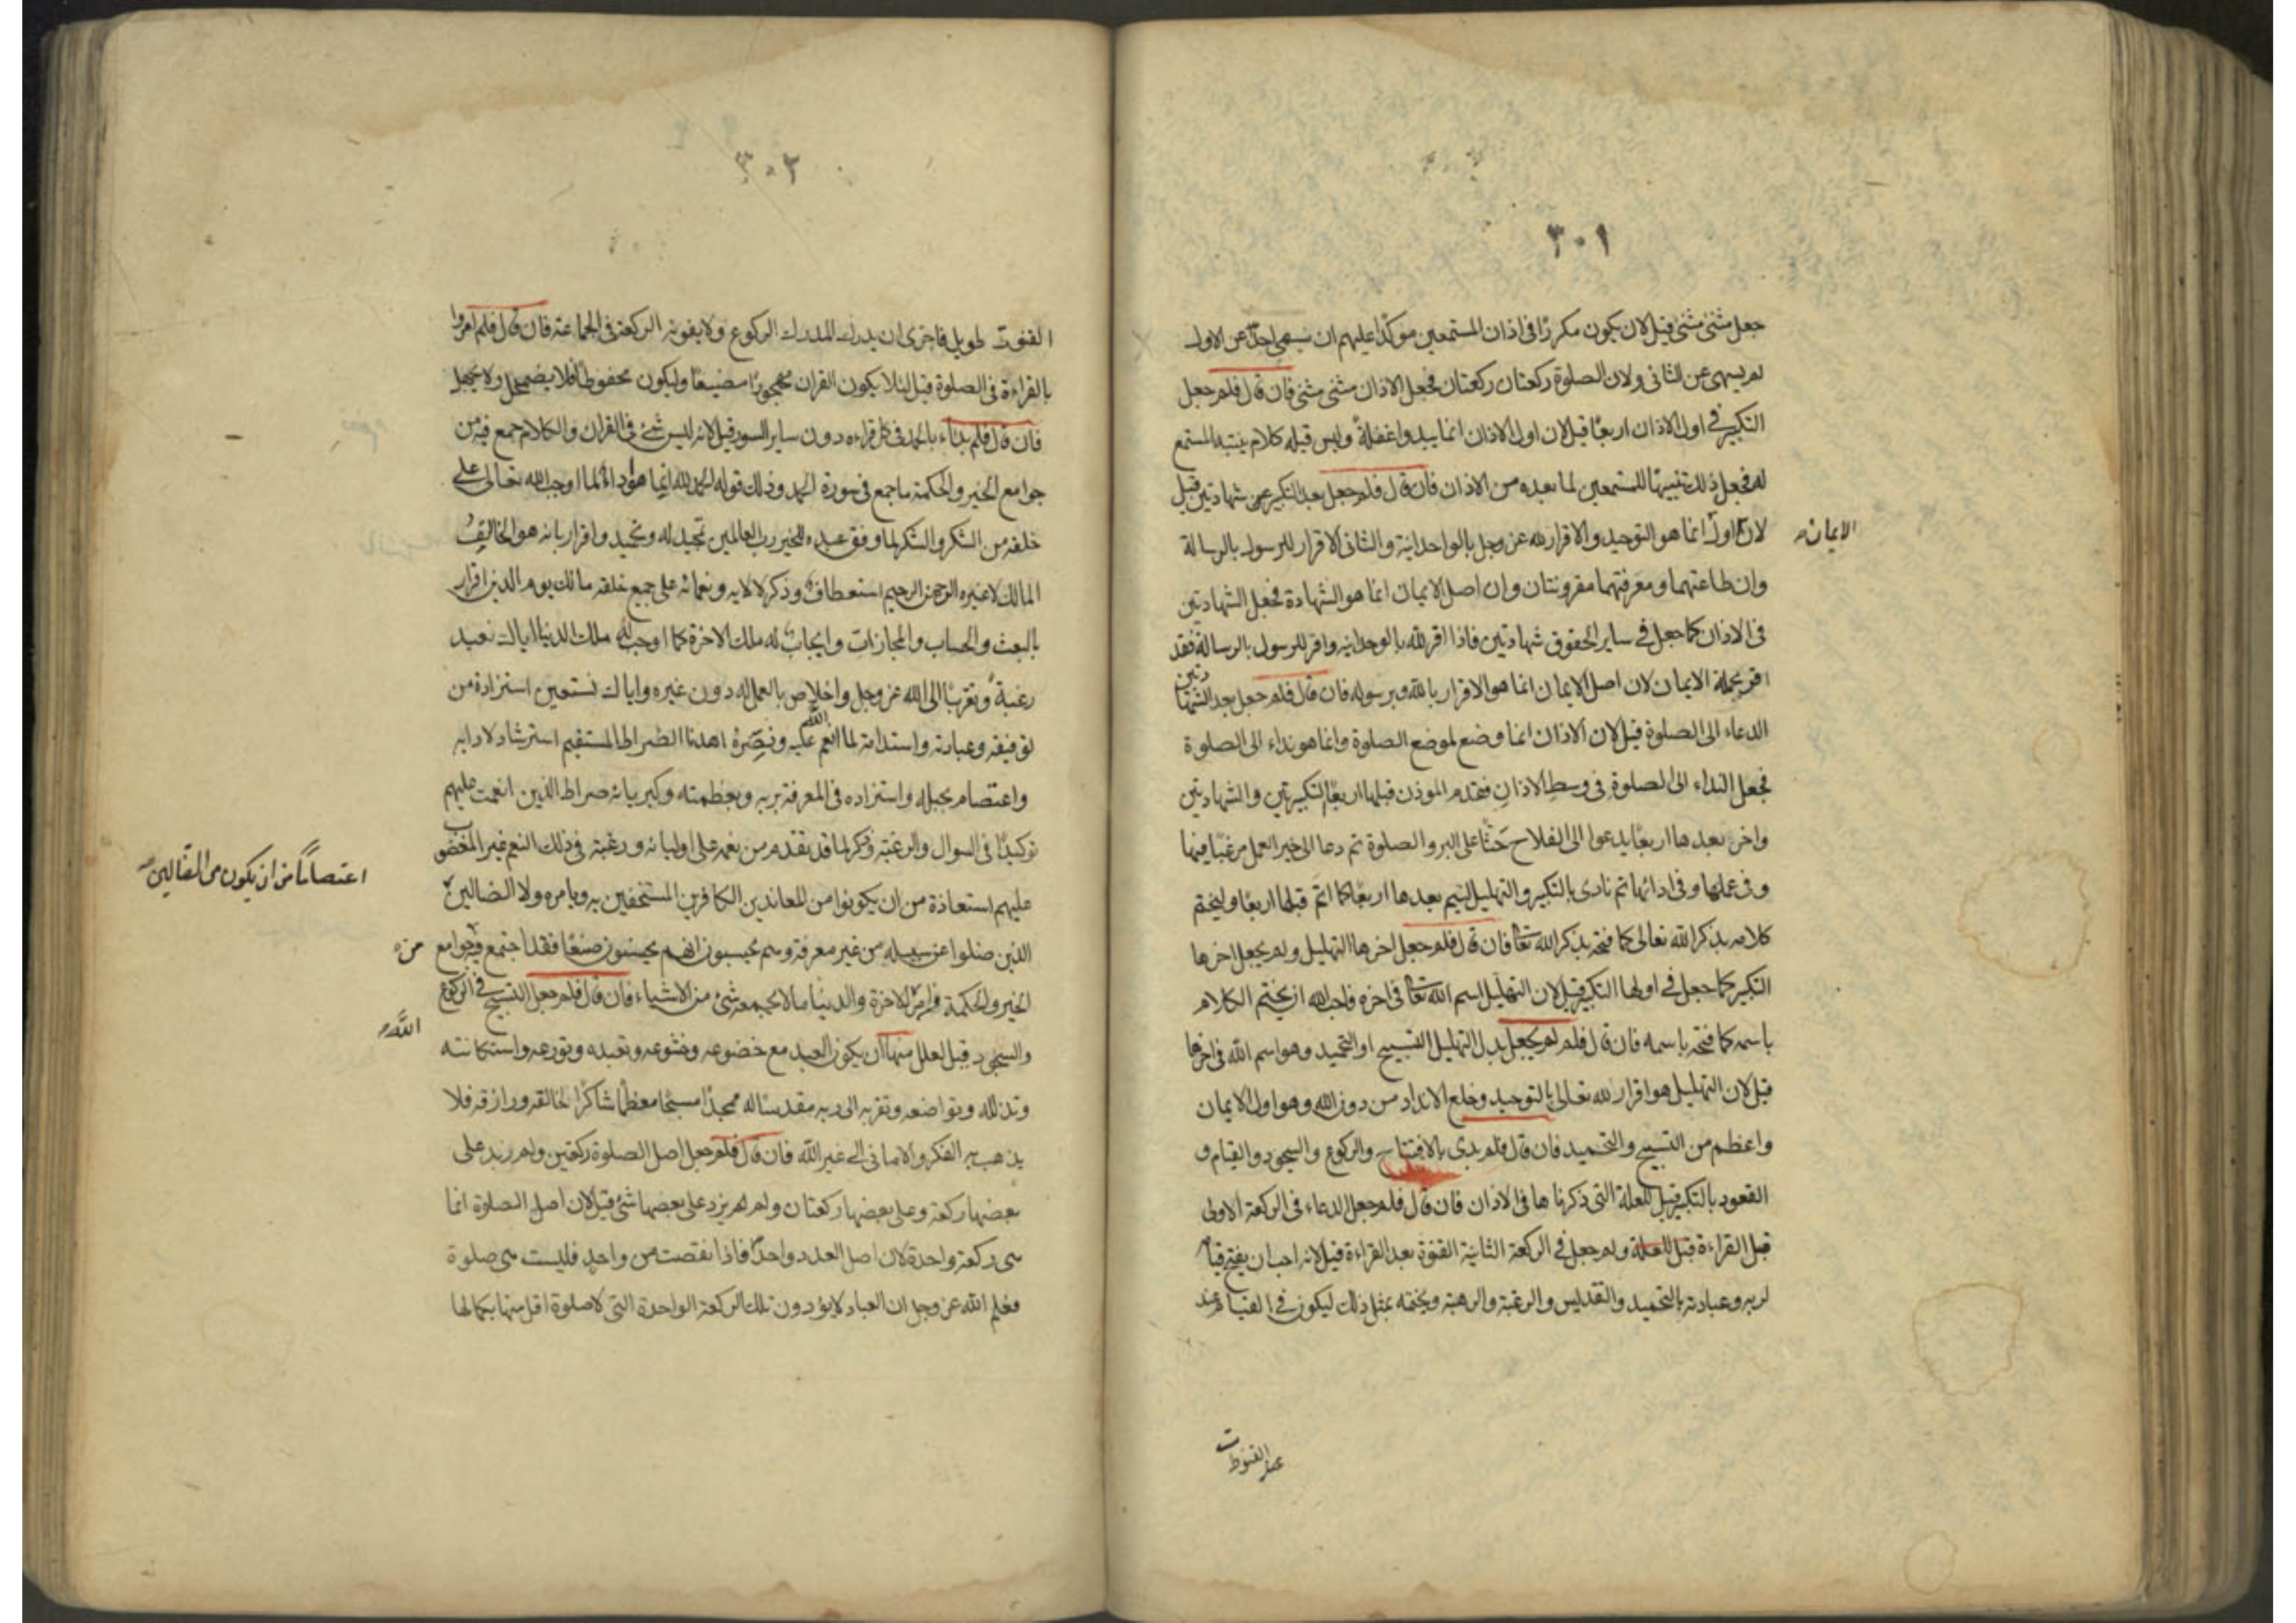 ٣٠١
جعل مثنى مثنى قيل لان يكون مكررا فى اذان المستمعين موكدا عليهم ان سهى احد عن الاول
لم يسهى عن الثانى ولان الصلوة ركعتان ركعتان فجعل الاذان مثنى مثنى فان قال فلم جعل
التكبير فى اول الاذان اربعا قيل لان اول الاذان انما يبدوا غفلة وليس قبله كلام ينتبه المستمع
له فجعل ذلك تنبيها للمستمعين لما بعده من الاذان فان قال فلم جعل بعد التكبير شهادتين قيل
لان اول انما هو التوحيد والاقرار لله عز وجل بالواحدانية والثانى الاقرار للرسول بالرسالة
الايمان
وان طاعتهما ومعرفتهما مقرونتان وان اصل الايمان انما هو الشهادة فجعل الشهادتين
فى الاذان كما جعل فى ساير الحقوق شهادتين فاذا اقر لله بالوحدانيه واقر للرسول بالرسالة فقد
اقر بجملة الايمان لان اصل الايمان انما هو الاقرار بالله وبرسوله فان قال فلم جعل بعد الشهادتين
الدعاء الى الصلوة قيل لان الاذان انما وضع لموضع الصلوة وانما هو نداء الى الصلوة
فجعل النداء الى الصلوة فى وسط الاذان فتقدم الموذن قبلها اربعا التكبيرتين والشهادتين
واخر بعدها اربعا يدعوا الى الفلاح حثا على البر والصلوة ثم دعا الى خير العمل مرغبا فيها
وفى عملها وفى ادائها ثم نادى بالتكبير والتهليل ليتم بعدها اربعا كما اتم قبلها اربعا وليختم
كلامه بذكر الله تعالى كما فتحه بذكر الله تعا فان قال فلم جعل اخرها التهليل ولم يجعل اخرها
التكبير كما جعل فى اولها التكبير قيل لان التهليل اسم الله تعا فى اخره فاحب الله ان يختم الكلام
باسمه كما فتحه باسمه فان قال فلم لم يجعل بدل التهليل التسبيح او التحميد وهو اسم الله فى اخرها
قيل لان التهليل هو اقرار لله تعالى بالتوحيد وخلع الانداد من دون الله وهو اول الايمان
واعظم من التسبيح والتحميد فان قال فلم بدى بالافتتاح والركوع والسجود والقيام و
القعود بالتكبير قيل للعلة التى ذكرناها فى الاذان فان قال فلم جعل الدعاء فى الركعة الاولى
قبل القراءة قيل للعلة ولم جعل فى الركعة الثانية القنوة بعد القراءة قيل لانه احب ان يفتح قيامه
لربه وعبادته بالتحميد والتقديس والرغبة والرهبة ويختمه بمثل ذلك ليكون فى القيام عند
القنوت
٣٠٢
القنوت طويل فاحرى ان يدرك المدرك الركوع ولا يفوته الركعة فى الجماعة فان قال فلم امروا
بالقراءة فى الصلوة قيل لئلا يكون القران مهجورا مضيعا وليكون محفوظا فلا يضمحل ولا يجهل
فان قال فلم بداء بالحمد فى كل قراءه دون ساير السور قيل لانه ليس شئ فى القران والكلام جمع فيه من
جوامع الخير والحكمة ما جمع فى سورة الحمد وذلك قوله الحمد لله انما هو اداء لما اوجب الله تعالى على
خلقه من الشكر والشكر لما وفق عبده للخير رب العالمين تمجيد له وتحميد واقرار بانه هو الخالق
المالك لا غيره الرحمن الرحيم استعطاف وذكر لالايه ونعمائه على جميع خلقه مالك يوم الدين اقرار
بالبعث والحساب والمجازات وايجاب له ملك الاخرة كما اوجب له ملك الدنيا اياك نعبد
رغبة وتقربا الى الله عز وجل واخلاص بالعمل له دون غيره واياك نستعين استزادة من
توفيقه وعبادته واستدامة لما انعم الله عليه ونصره اهدنا الصراط المستقيم استرشاد لادابه
واعتصام بحبله واستزاده فى المعرفة بربه وبعظمته وكبريائه صراط الذين انعمت عليهم
توكيدا فى السوال والرغبة وذكر لما قد تقدم من نعمه على اوليائه ورغبة فى ذلك النعم غير المغضوب
عليهم استعاذة من ان يكونوا من المعاندين الكافرين المستخفين به وبامره ولا الضالين
اعتصاما من ان يكون من الضالين
الذين ضلوا عن سبيله من غير معرفة وهم يحسبون انهم يحسنون صنعا فقد اجتمع فيه جوامع
من
الخير والحكمة فى امر الاخرة والدنيا ما لا يجمعه شئ من الاشياء فان قال فلم جعل التسبيح فى الركوع
والسجود قيل لعلل منها ان يكون العبد مع خضوعه وخشوعه وتعبده وتورعه واستكانته
وتذلله وتواضعه وتقربه الى ربه مقدسا له ممجدا مسبحا معظما شاكرا لخالقه ورازقه فلا
يذهب به الفكر والامانى الى غير الله فان قال فلم جعل اصل الصلوة ركعتين ولم زيد على
بعضها ركعة وعلى بعضها ركعتان ولم لم يزد على بعضها شئ قيل لان اصل الصلوة انما
هى ركعة واحدة لان اصل العدد واحد فاذا نقصت من واحد فليست هى صلوة
فعلم الله عز وجل ان العباد لا يؤدون تلك الركعة الواحدة التى لا صلوة اقل منها بكمالها